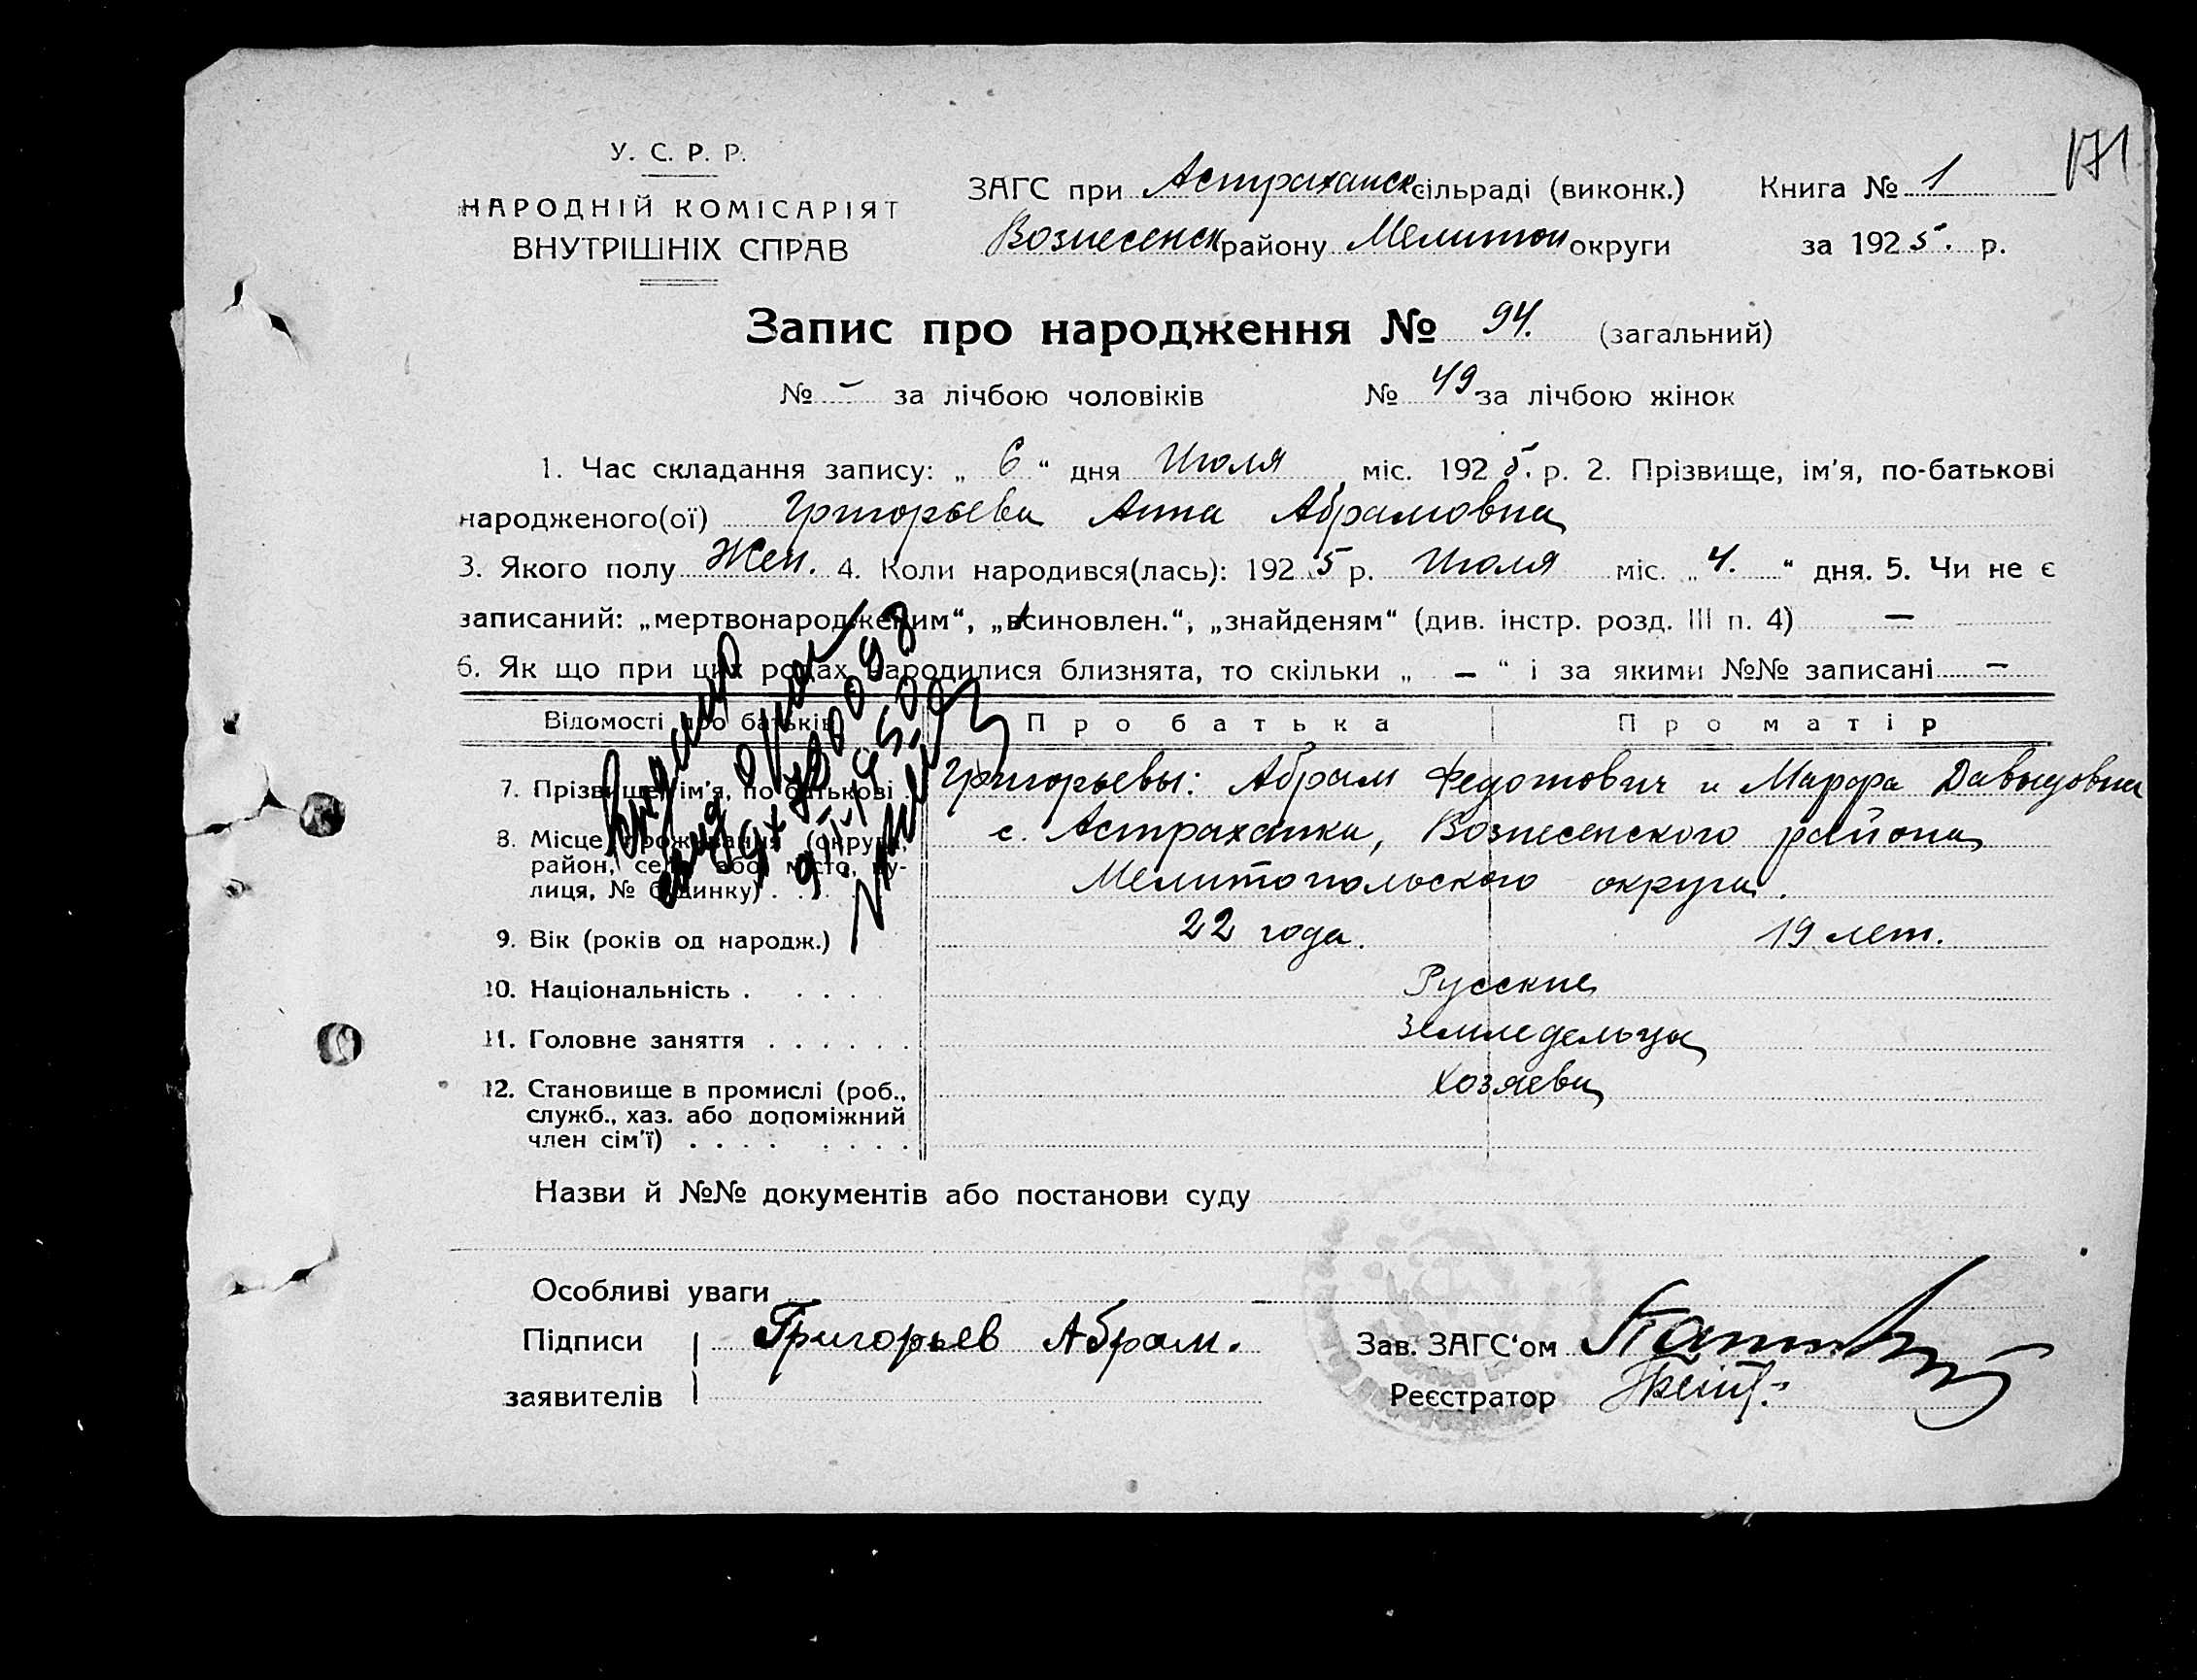 171
У. С. Р. Р.
НАРОДНІЙ КОМІСАРІЯТ
ВНУТРІШНІХ СПРАВ
ЗАГС при Астраханск сільраді (виконк.) Книга № 1
Вознесенск району Мелитоп округи за 1925. р.
Запис про народження № 94. (загальний)
№ – за лічбою чоловіків № 49 за лічбою жінок
1. Час складання запису: „ 6 “ дня Июля міс. 1925. р. 2. Прізвище, ім'я, по-батькові
народженого(ої) Григорьева Анна Абрамовна
3. Якого полу Жен. 4. Коли народився(лась): 1925 р. Июля міс. „4.“ дня. 5. Чи не є
записаний: „мертвонародженим“, „всиновлен.“, „знайденям“ (див. інстр. розд. III п. 4) —
6. Як що при цих родах народилися близнята, то скільки „ — “ і за якими №№ записані —
Відомості про батьків Про батька Про матір
7. Прізвище, ім'я, по батькові Григорьевы: Абрам Федотович и Марфа Давыдовна
8. Місце проживання (округа, с. Астраханка, Вознесенского района
район, село або місто, ву-
лиця, № будинку) . . . Мелитопольского округа.
9. Вік (років од народж.) 22 года. 19 лет.
10. Національність . . . . . Русские
11. Головне заняття . . . . . . Земледельцы
12. Становище в промислі (роб., Хозяева
служб., хаз. або допоміжний
член сім'ї) . . . . . . . .
Назви й №№ документів або постанови суду
Особливі уваги
Підписи Григорьев Абрам.
заявителів
Зав. ЗАГС'ом
Реєстратор